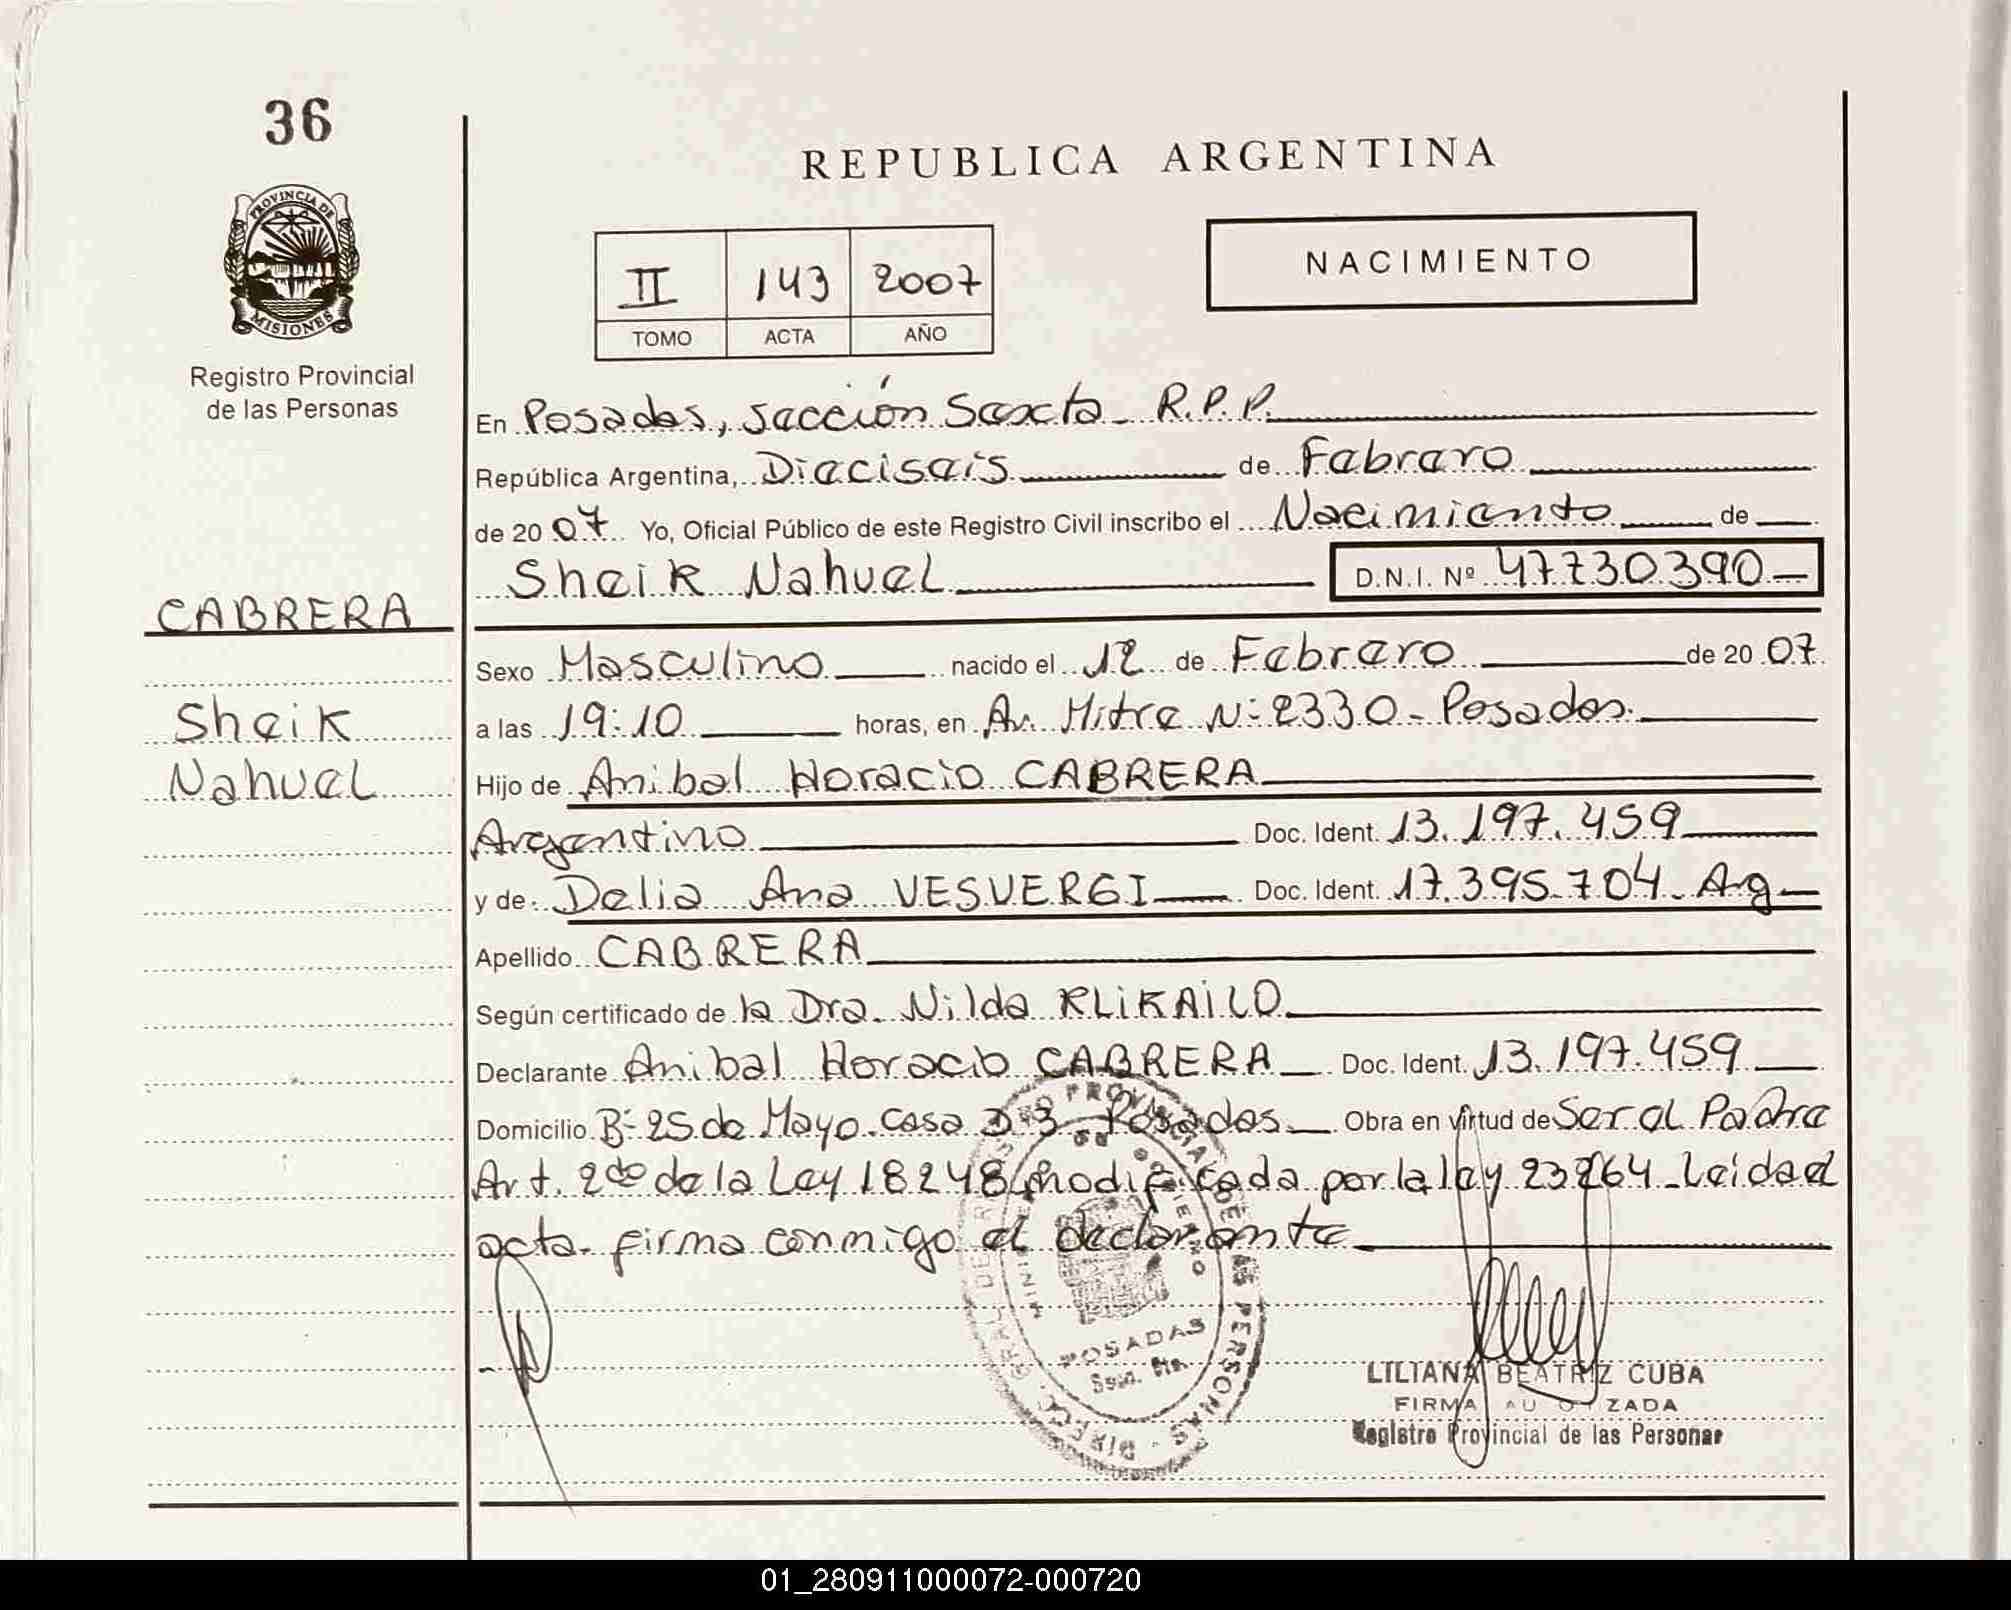 36
PROVINCIA DE
MISIONES
Registro Provincial
de las Personas
CABRERA
Sheik
Nahuel
REPUBLICA ARGENTINA
II 143 2007
TOMO ACTA AÑO
NACIMIENTO
En Posadas, sección Sexta - R.P.P.
República Argentina, Dieciseis de Febrero
de 2007 Yo, Oficial Público de este Registro Civil inscribo el Nacimiento de
Sheik Nahuel D.N.I. Nº 47730390
Sexo Masculino nacido el 12 de Febrero de 2007
a las 19:10 horas, en Av. Mitre Nº 2330 - Posadas.
Hijo de Anibal Horacio CABRERA
Argentino Doc. Ident. 13.197.459
y de Delia Ana VESVERGI Doc. Ident. 17.395.704 - Arg
Apellido CABRERA
Según certificado de la Dra. Nilda KLIKAILO
Declarante Anibal Horacio CABRERA Doc. Ident. 13.197.459
Domicilio Bº 25 de Mayo - Casa D-3 - Posadas Obra en virtud de Ser el Padre
Art. 2do de la Ley 18248 modificada por la ley 23264 - Leida el
acta - firma conmigo el declarante
POSADAS
LILIANA BEATRIZ CUBA
FIRMA AUTORIZADA
Registro Provincial de las Personas
01_280911000072-000720